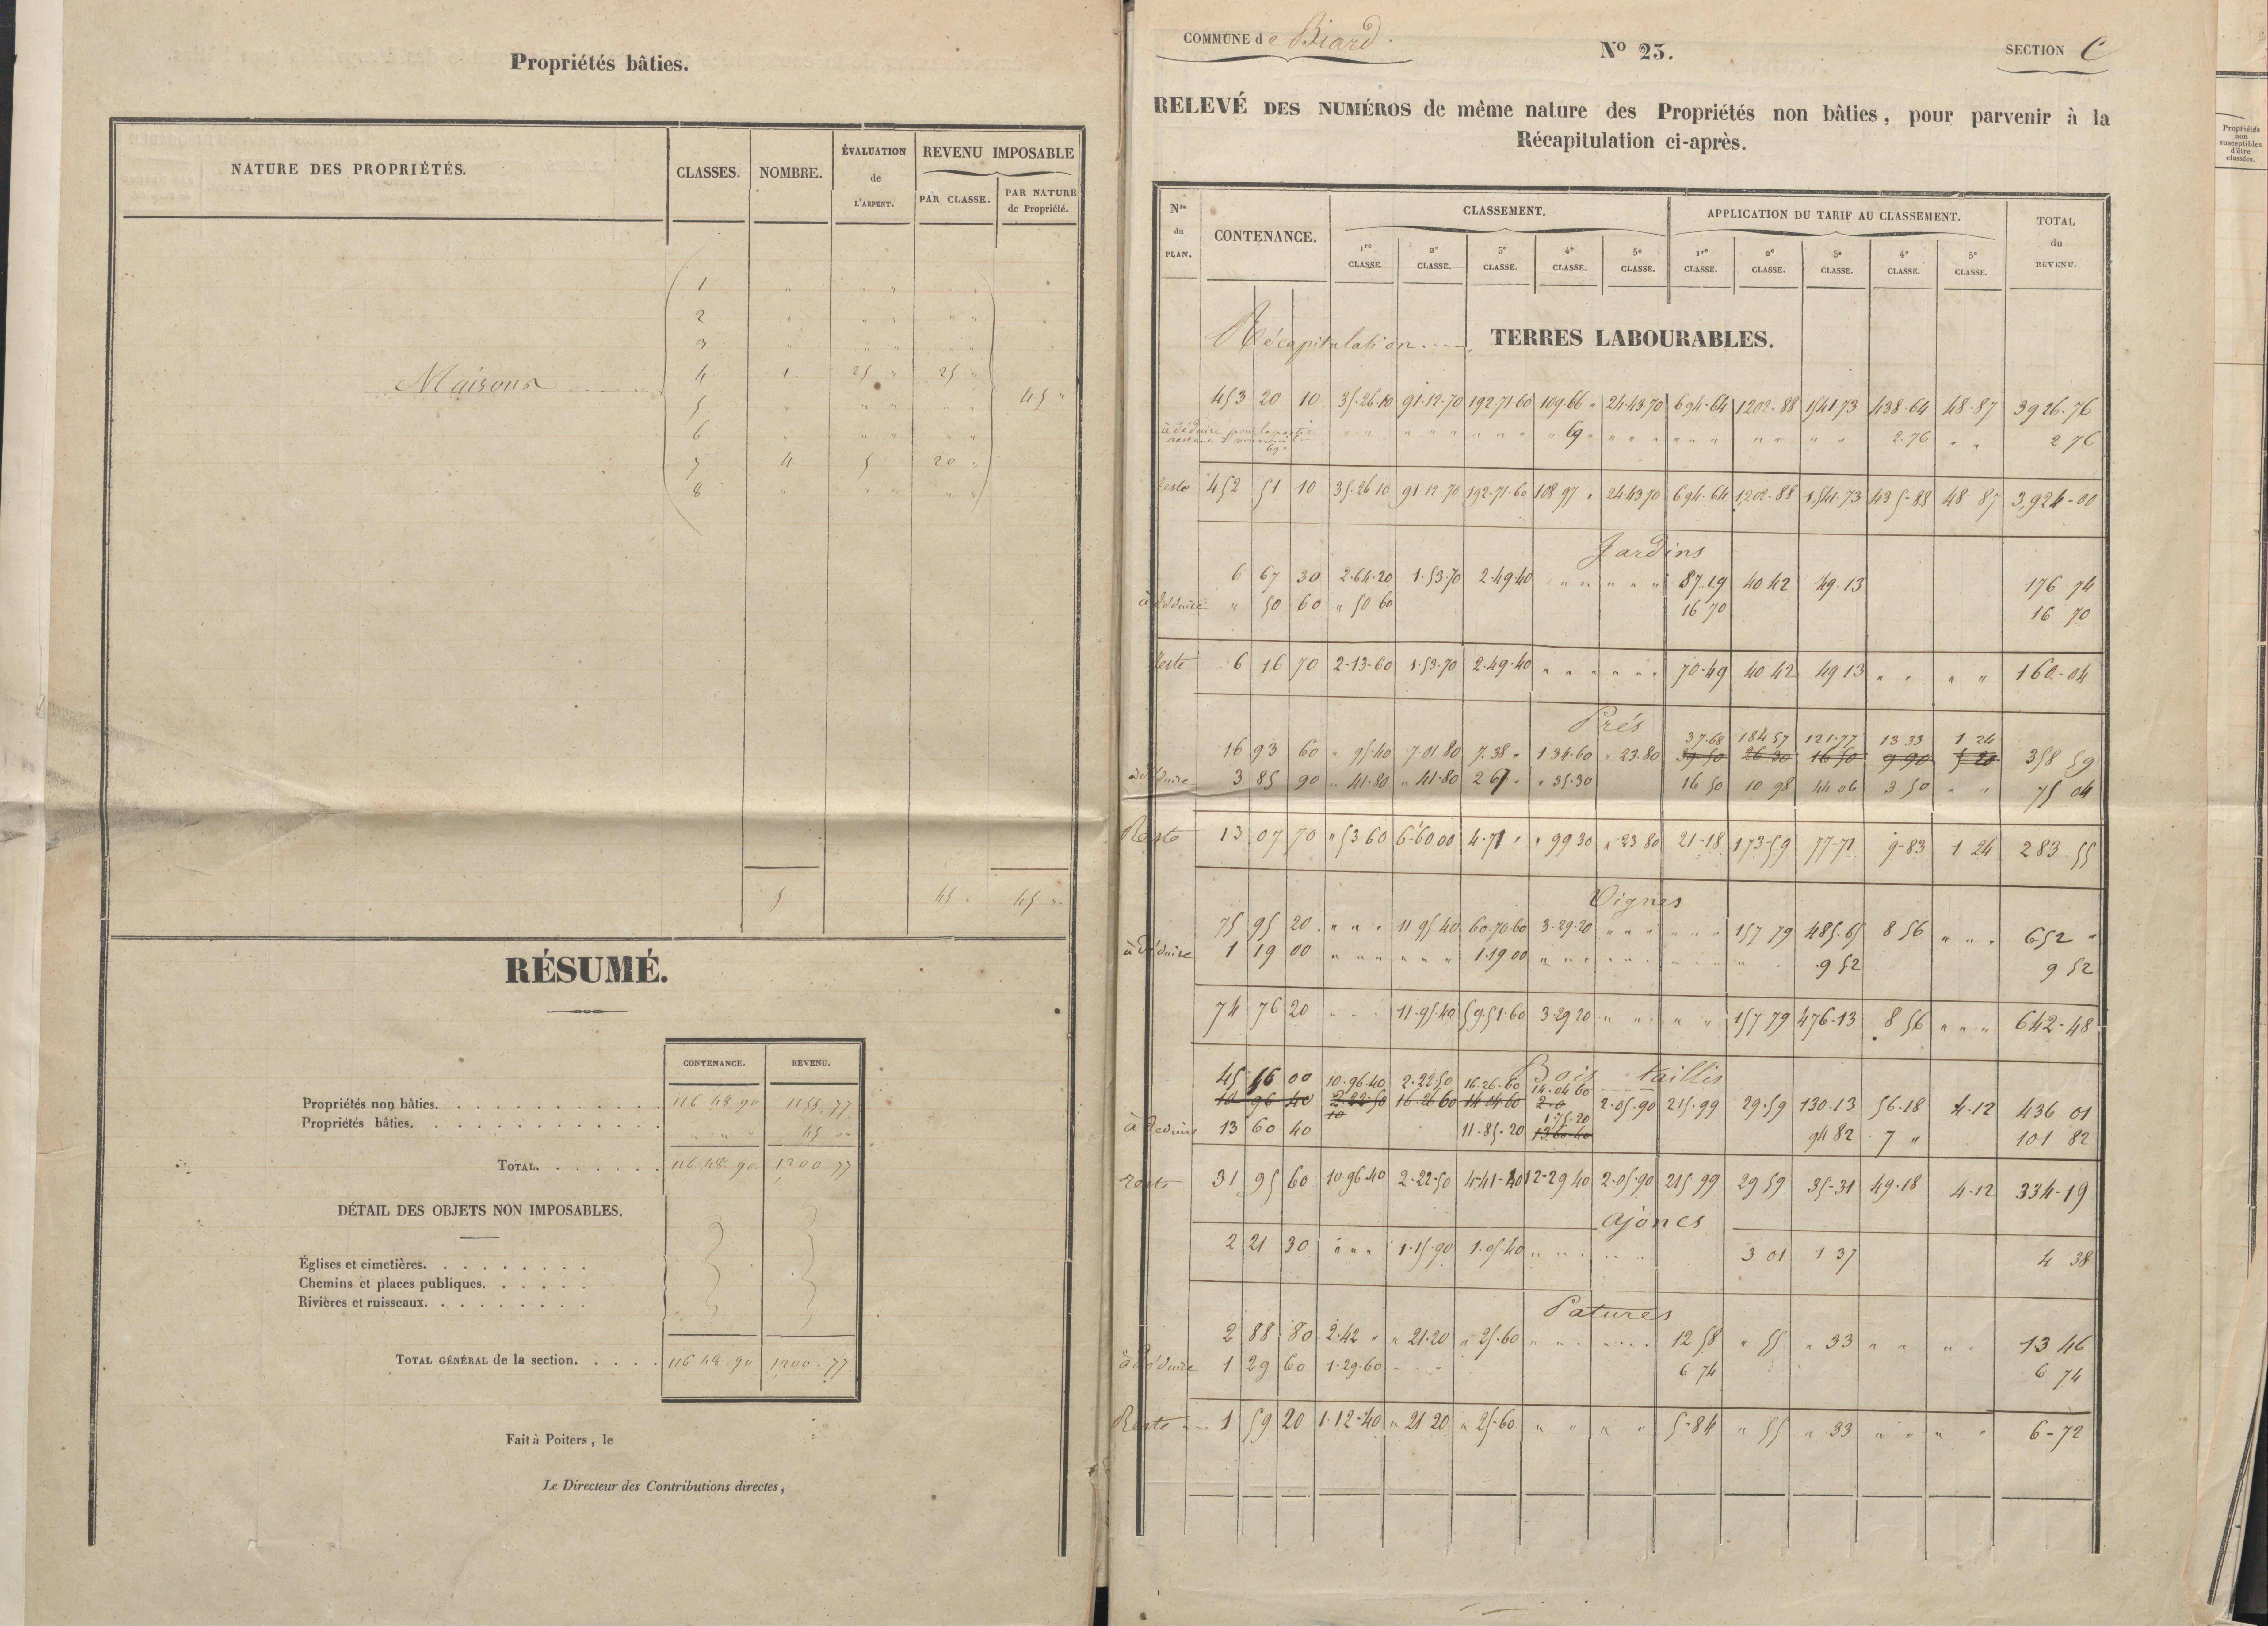 Propriétés bâties.
NATURE DES PROPRIÉTÉS. CLASSES. NOMBRE. ÉVALUATION de L'ARPENT. REVENU IMPOSABLE
PAR CLASSE. PAR NATURE de Propriété.
1 " " " " "
2 " " " " "
3 " " " " "
Maisons 4 1 25 " 25 " 45 "
5 " " " " "
6 " " " " "
7 4 5 20 "
8 " " " " "
5 45 " 45 "
RÉSUMÉ.
CONTENANCE. REVENU.
Propriétés non bâties. 116 48 90 1155 77
Propriétés bâties. " " " 45 00
TOTAL. 116 48 90 1200 77
DÉTAIL DES OBJETS NON IMPOSABLES.
Églises et cimetières.
Chemins et places publiques.
Rivières et ruisseaux.
TOTAL GÉNÉRAL de la section. 116 48 90 1200 77
Fait à Poitiers, le
Le Directeur des Contributions directes,
COMMUNE de Biard. No 23. SECTION C
RELEVÉ DES NUMÉROS de même nature des Propriétés non bâties, pour parvenir à la
Récapitulation ci-après.
Nos du PLAN. CONTENANCE. CLASSEMENT. APPLICATION DU TARIF AU CLASSEMENT. TOTAL du REVENU.
1re CLASSE. 2e CLASSE. 3e CLASSE. 4e CLASSE. 5e CLASSE. 1re CLASSE. 2e CLASSE. 3e CLASSE. 4e CLASSE. 5e CLASSE.
Récapitulation TERRES LABOURABLES.
453 20 10 35.26.10 91.12.70 192.71.60 109.66 " 24.43.70 694.64 1202.88 1541.73 438.64 48.87 3926.76
à déduire pour la partie 69 2.76 2 76
reste 452 51 10 35.26 10 91.12.70 192.71.60 108 97 " 24.43 70 694.64 1,202.88 1,541.73 435-88 48 87 3,924-00
Jardins
6 67 30 2.64.20 1.53.70 2.49.40 " " " " " " 87.19 40 42 49.13 176 74
à déduire " 50 60 " 50 60 16 70 16 70
Reste 6 16 70 2-13-60 1.53.70 2.49.40 " " " " " " 70-49 40 42 49 13 " " " " 160-04
Prés
37.68 184 57 121.77 13 33 1 24
16 93 60 " 95.40 7.01 80 7.38 " 1.34.60 " 23.80 39 50 26 30 16 50 9 90 1 20 358 59
à déduire 3 85 90 " 41.80 " 41.80 2 67 " " 35.30 16 50 10 98 44 06 3 50 " " 75 04
Reste 13 07 70 " 53 60 6-60 00 4-71 " " 99 30 " 23 80 21-18 173-59 77-71 9-83 1 24 283 55
Vignes
75 95 20 " " " 11 95 40 60.70 60 3-29.20 " " " " " 157 79 485.65 8 56 " " " 652 "
à déduire 1 19 00 " " " " " " 1.19 00 " " " " " " 9 52 9 52
74 76 20 " " " 11-95.40 59.51.60 3-29 20 " " " " " 157 79 476-13 8 56 " " " 642-48
Bois taillis
45 56 00 10.96.40 2.22 50 16.26.60 14.04 60
10 96 40 2 22 50 16 26 60 14 04 60 2.05.90 215.99 29.59 130.13 56.18 4.12 436 01
à déduire 13 60 40 11.85.20 1.75.20 94 82 7 " 101 82
reste 31 95 60 10 96.40 2-22-50 4-41-40 12-29 40 2.05.90 215 99 29 59 35-31 49.18 4.12 334-19
Ajoncs
2 21 30 " " " 1.15.90 1.05.40 " " " " " 3 01 1 37 4 38
Patures
2 88 80 2.42 " " 21.20 " 25.60 " " " " " 12 58 " 55 " 33 " " " " 13 46
à déduire 1 29 60 1.29.60 6 74 6 74
Reste 1 59 20 1-12-40 " 21 20 " 25-60 " " " " 5-84 " 55 " 33 " " " " 6-72
Propriétés
non
susceptibles
d'être
classées.